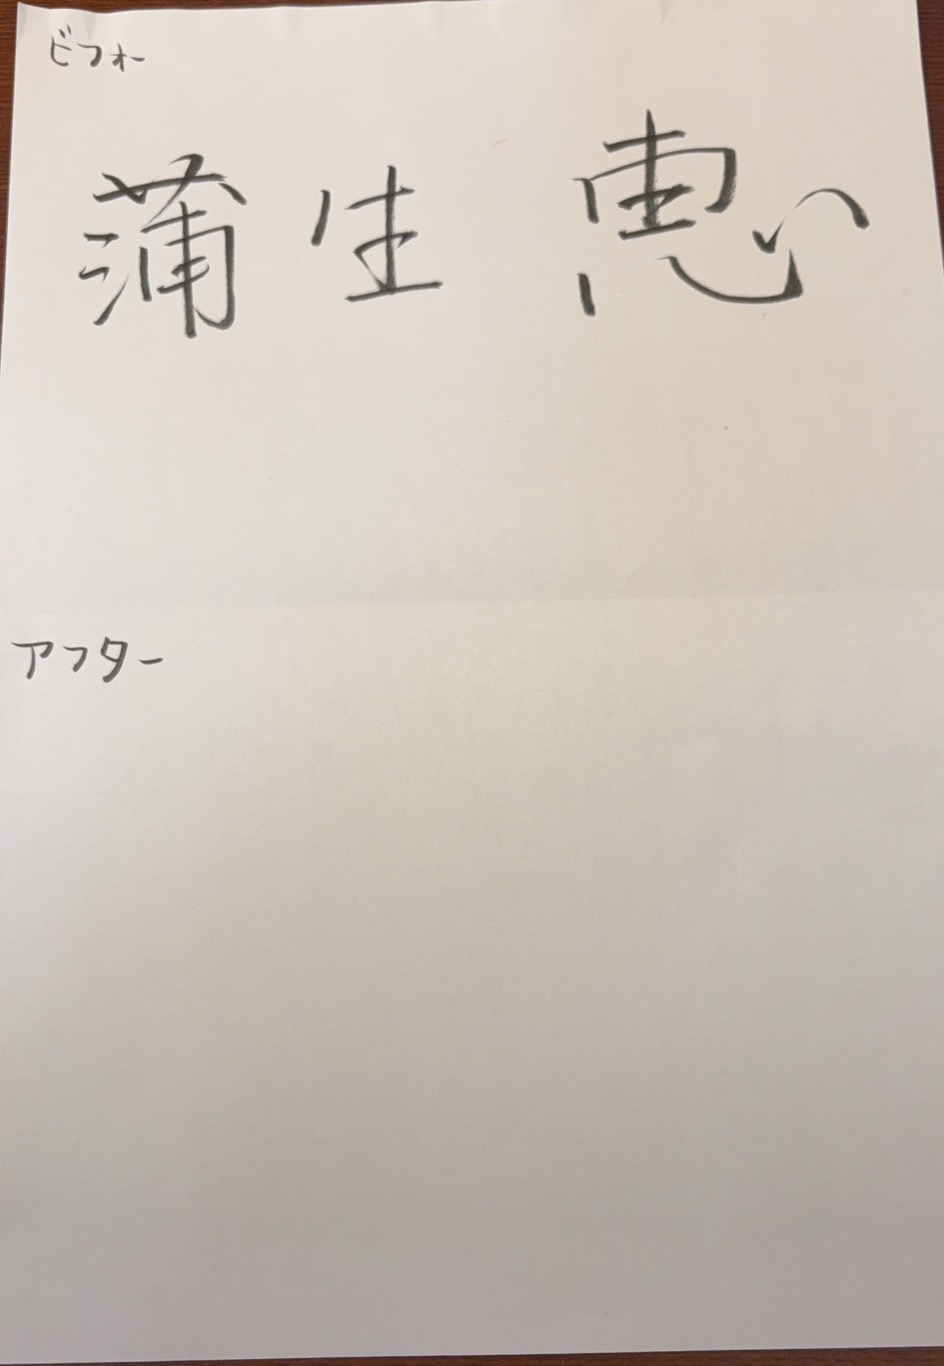 ビフォー
蒲生 恵
アフター